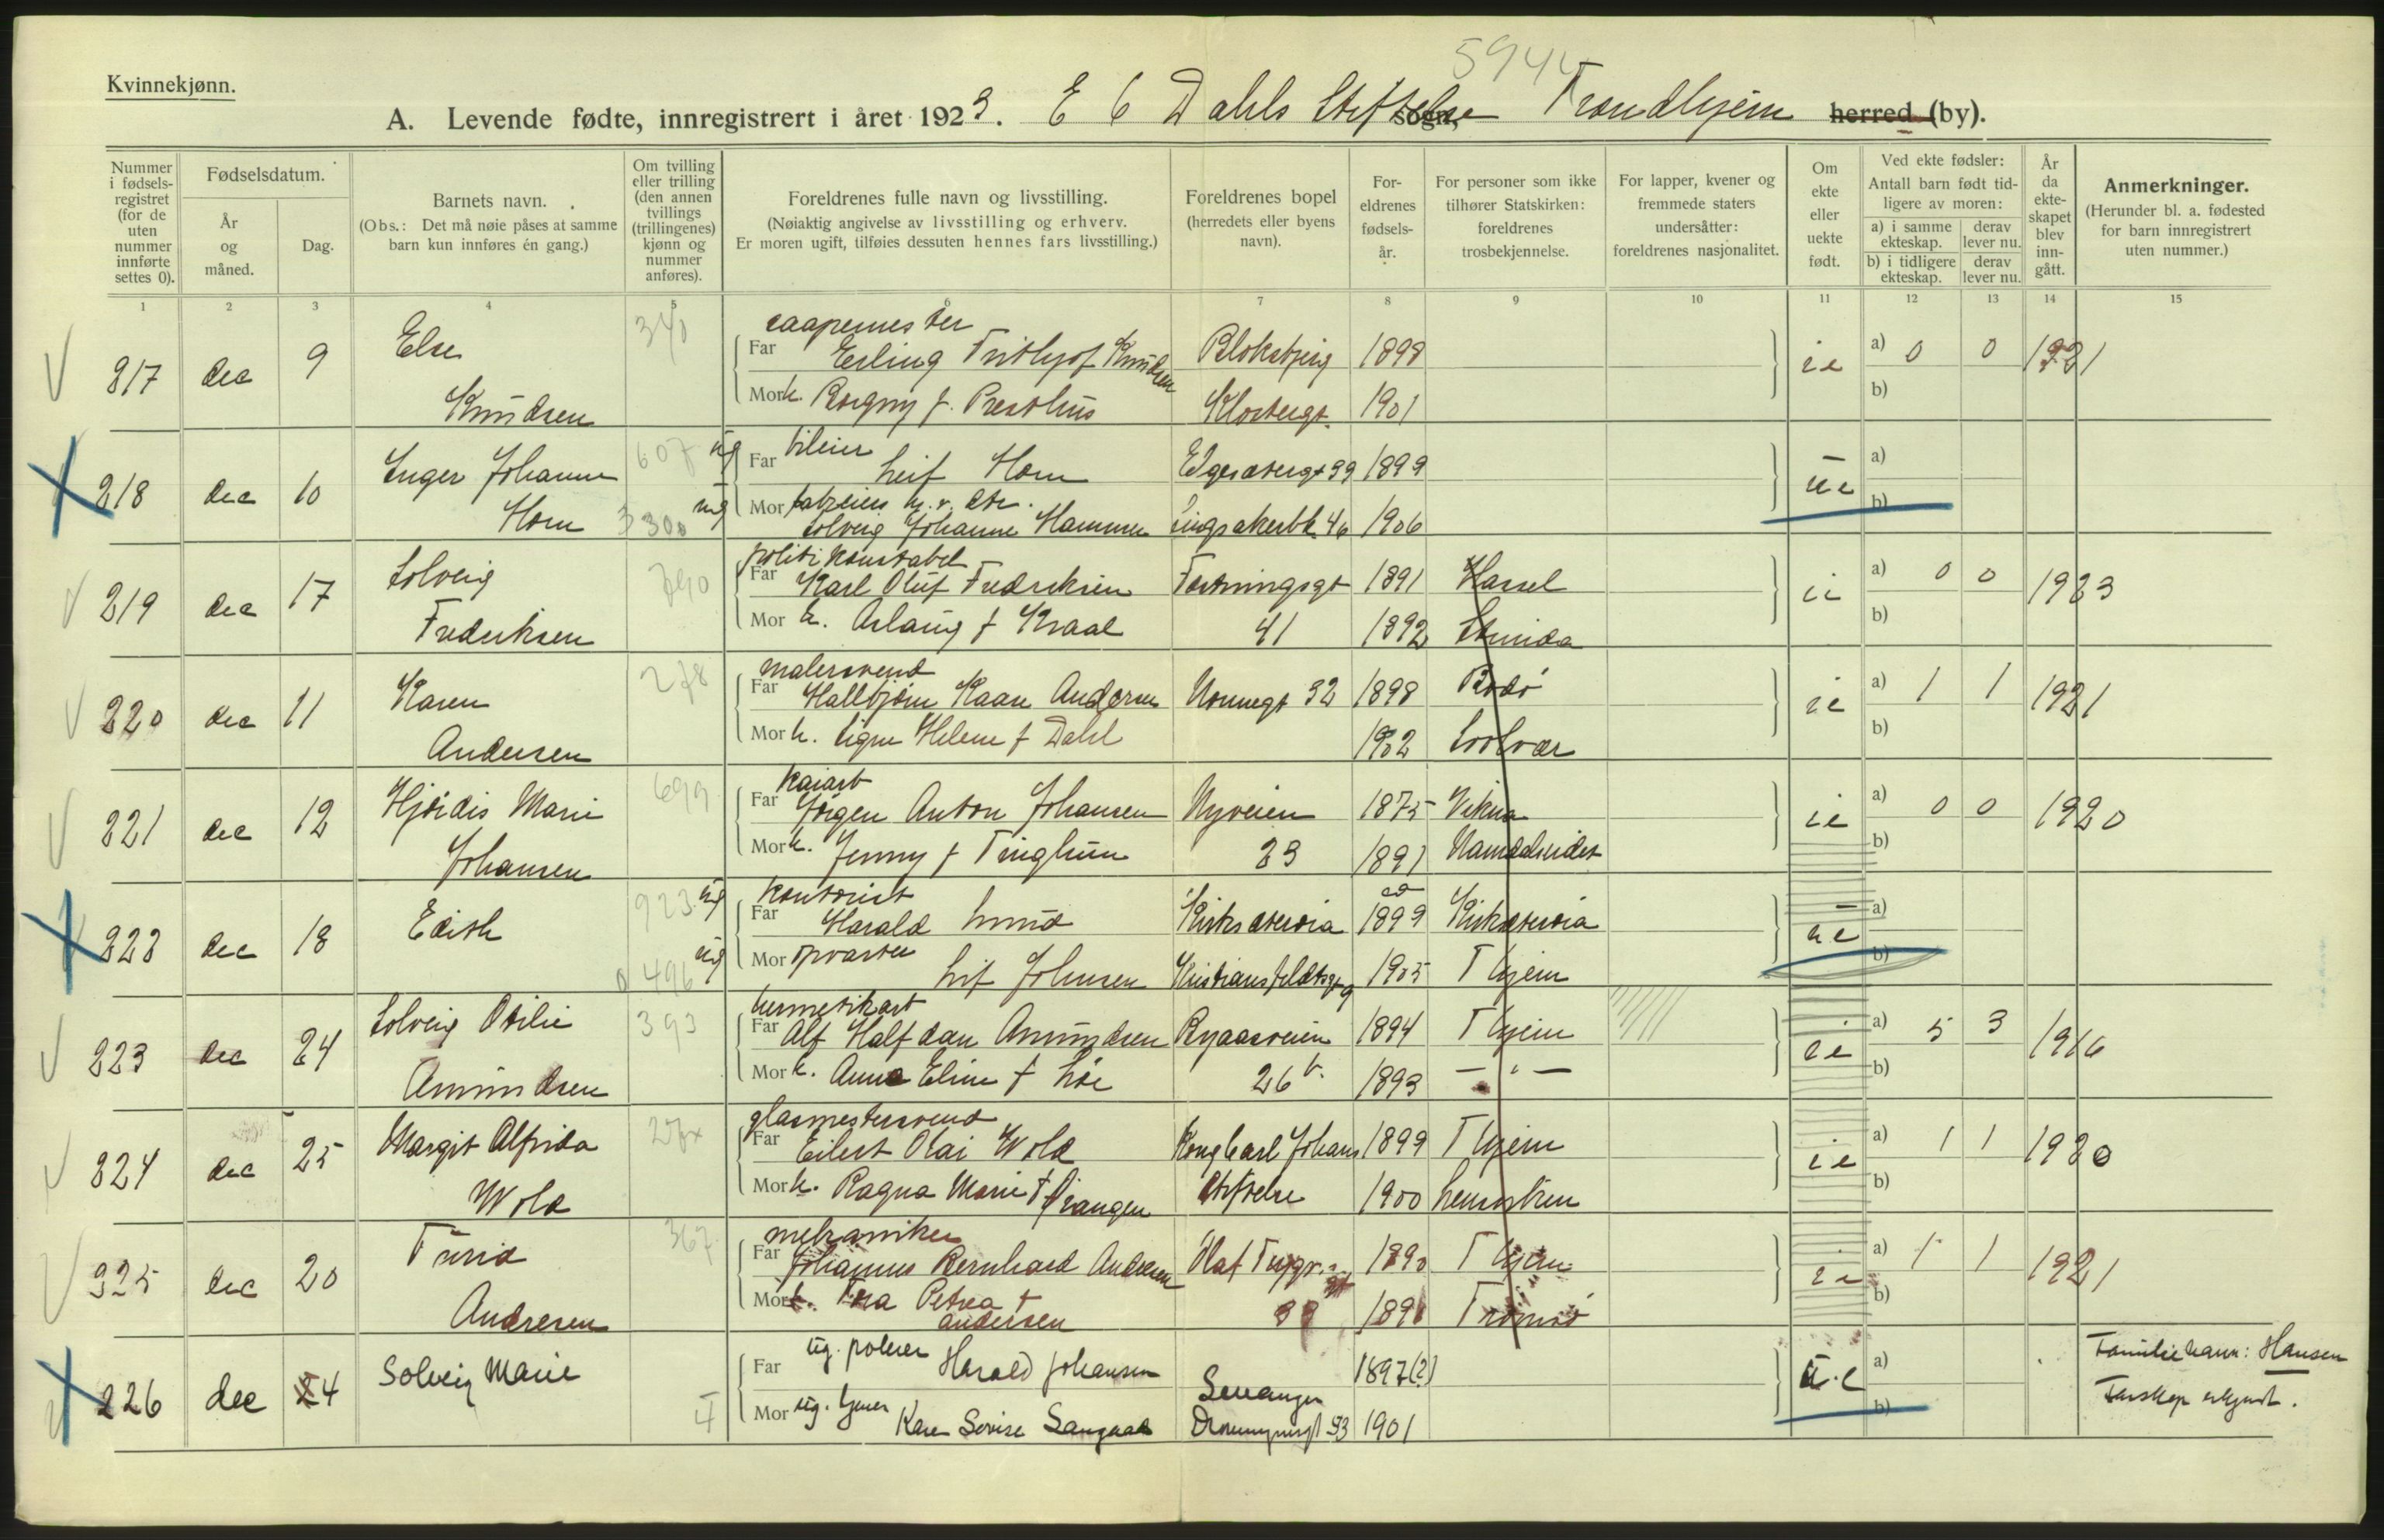 5944
Kvinnekjønn.
A. Levende fødte, innregistrert i året 1923. E C Dahls Stiftelse sogn, Trondhjem herred (by).
Nummer i fødselsregistret (for de uten nummer innførte settes 0).
Fødselsdatum.
År og måned.
Dag.
Barnets navn.
(Obs.: Det må nøie påses at samme barn kun innføres én gang.)
Om tvilling eller trilling (den annen tvillings (trillingenes) kjønn og nummer anføres).
Foreldrenes fulle navn og livsstilling.
(Nøiaktig angivelse av livsstilling og erhverv. Er moren ugift, tilføies dessuten hennes fars livsstilling.)
Foreldrenes bopel (herredets eller byens navn).
Foreldrenes fødselsår.
For personer som ikke tilhører Statskirken: foreldrenes trosbekjennelse.
For lapper, kvener og fremmede staters undersåtter: foreldrenes nasjonalitet.
Om ekte eller uekte født.
Ved ekte fødsler: Antall barn født tidligere av moren:
a) i samme ekteskap. derav lever nu.
b) i tidligere ekteskap. derav lever nu.
År da ekteskapet blev inngått.
Anmerkninger.
(Herunder bl. a. fødested for barn innregistrert uten nummer.)
1 2 3 4 5 6 7 8 9 10 11 12 13 14 15
340
217 dec 9 Else Knudsen
Far Erling Frithjof Knudsen Bloksbjerg 1898
Mor h. Borgny f. Presthus Klostergt. 1901
ie a) 0 0 1921
b)
607 ug
218 dec 10 Inger Johanne Horn
Far bileier Leif Horn 1899
3300 ug
Mor Solveig Johanne Hammer 46 1906
ue a)
b)
390
219 dec 17 Solveig Fredriksen
politikonstabel
Far Karl Oluf Fredriksen Festningsgt 1891 Hassel
Mor h. Aslaug f Kraal 41 1892 Strinda
ie a) 0 0 1923
b)
278
220 dec 11 Karen Andersen
malersvend
Far Hallbjørn Kaare Andersen Nonnegt 32 1898 Bodø
Mor h. Signe Helene f Dahl 1902 Svolvær
ie a) 1 1 1921
b)
699
221 dec 12 Hjørdis Marie Johansen
kaiarb
Far Jørgen Anton Johansen Nyveien 1875 Vikna
Mor h. Jenny f Tinghun 23 1891 Namdalseidet
ie a) 0 0 1920
b)
923 ug
222 dec 18 Edith
kontorist
Far Harald Lund 1899
496 ug
Mor opvarter Johnsen Kristiansfeldtsgt 9 1905 Thjem
ue a)
b)
393
223 dec 24 Solveig Otilie Amundsen
hermetikarb
Far Alf Halfdan Amundsen Byaasveien 1894 Thjem
Mor h. Anna Eline f Løe 26 b. 1893 — " —
ie a) 5 3 1916
b)
224 dec 25 Margit Alfrida Wold
glasmestersvend
Far Eilert Olai Wold Kong Carl Johans 1899 Thjem
Mor h. Ragna Marie f Stiftelse 1900 Lensviken
ie a) 1 1 1920
b)
367
225 dec 20 Turid Andresen
mekaniker
Far Johannes Bernhard Andresen Olaf Trygv. gt 1890 Thjem
Mor h. Petra f Andersen 1891 Tromsø
ie a) 1 1 1921
b)
226 dec 24 Solveig Marie
Far ug. polerer Harald Johansen 1897(?)
Mor ug. tjener Karen Lovise Dronningensgt 33 1901
u.e a)
b)
Familienavn: Hansen
Farskap erkjendt.